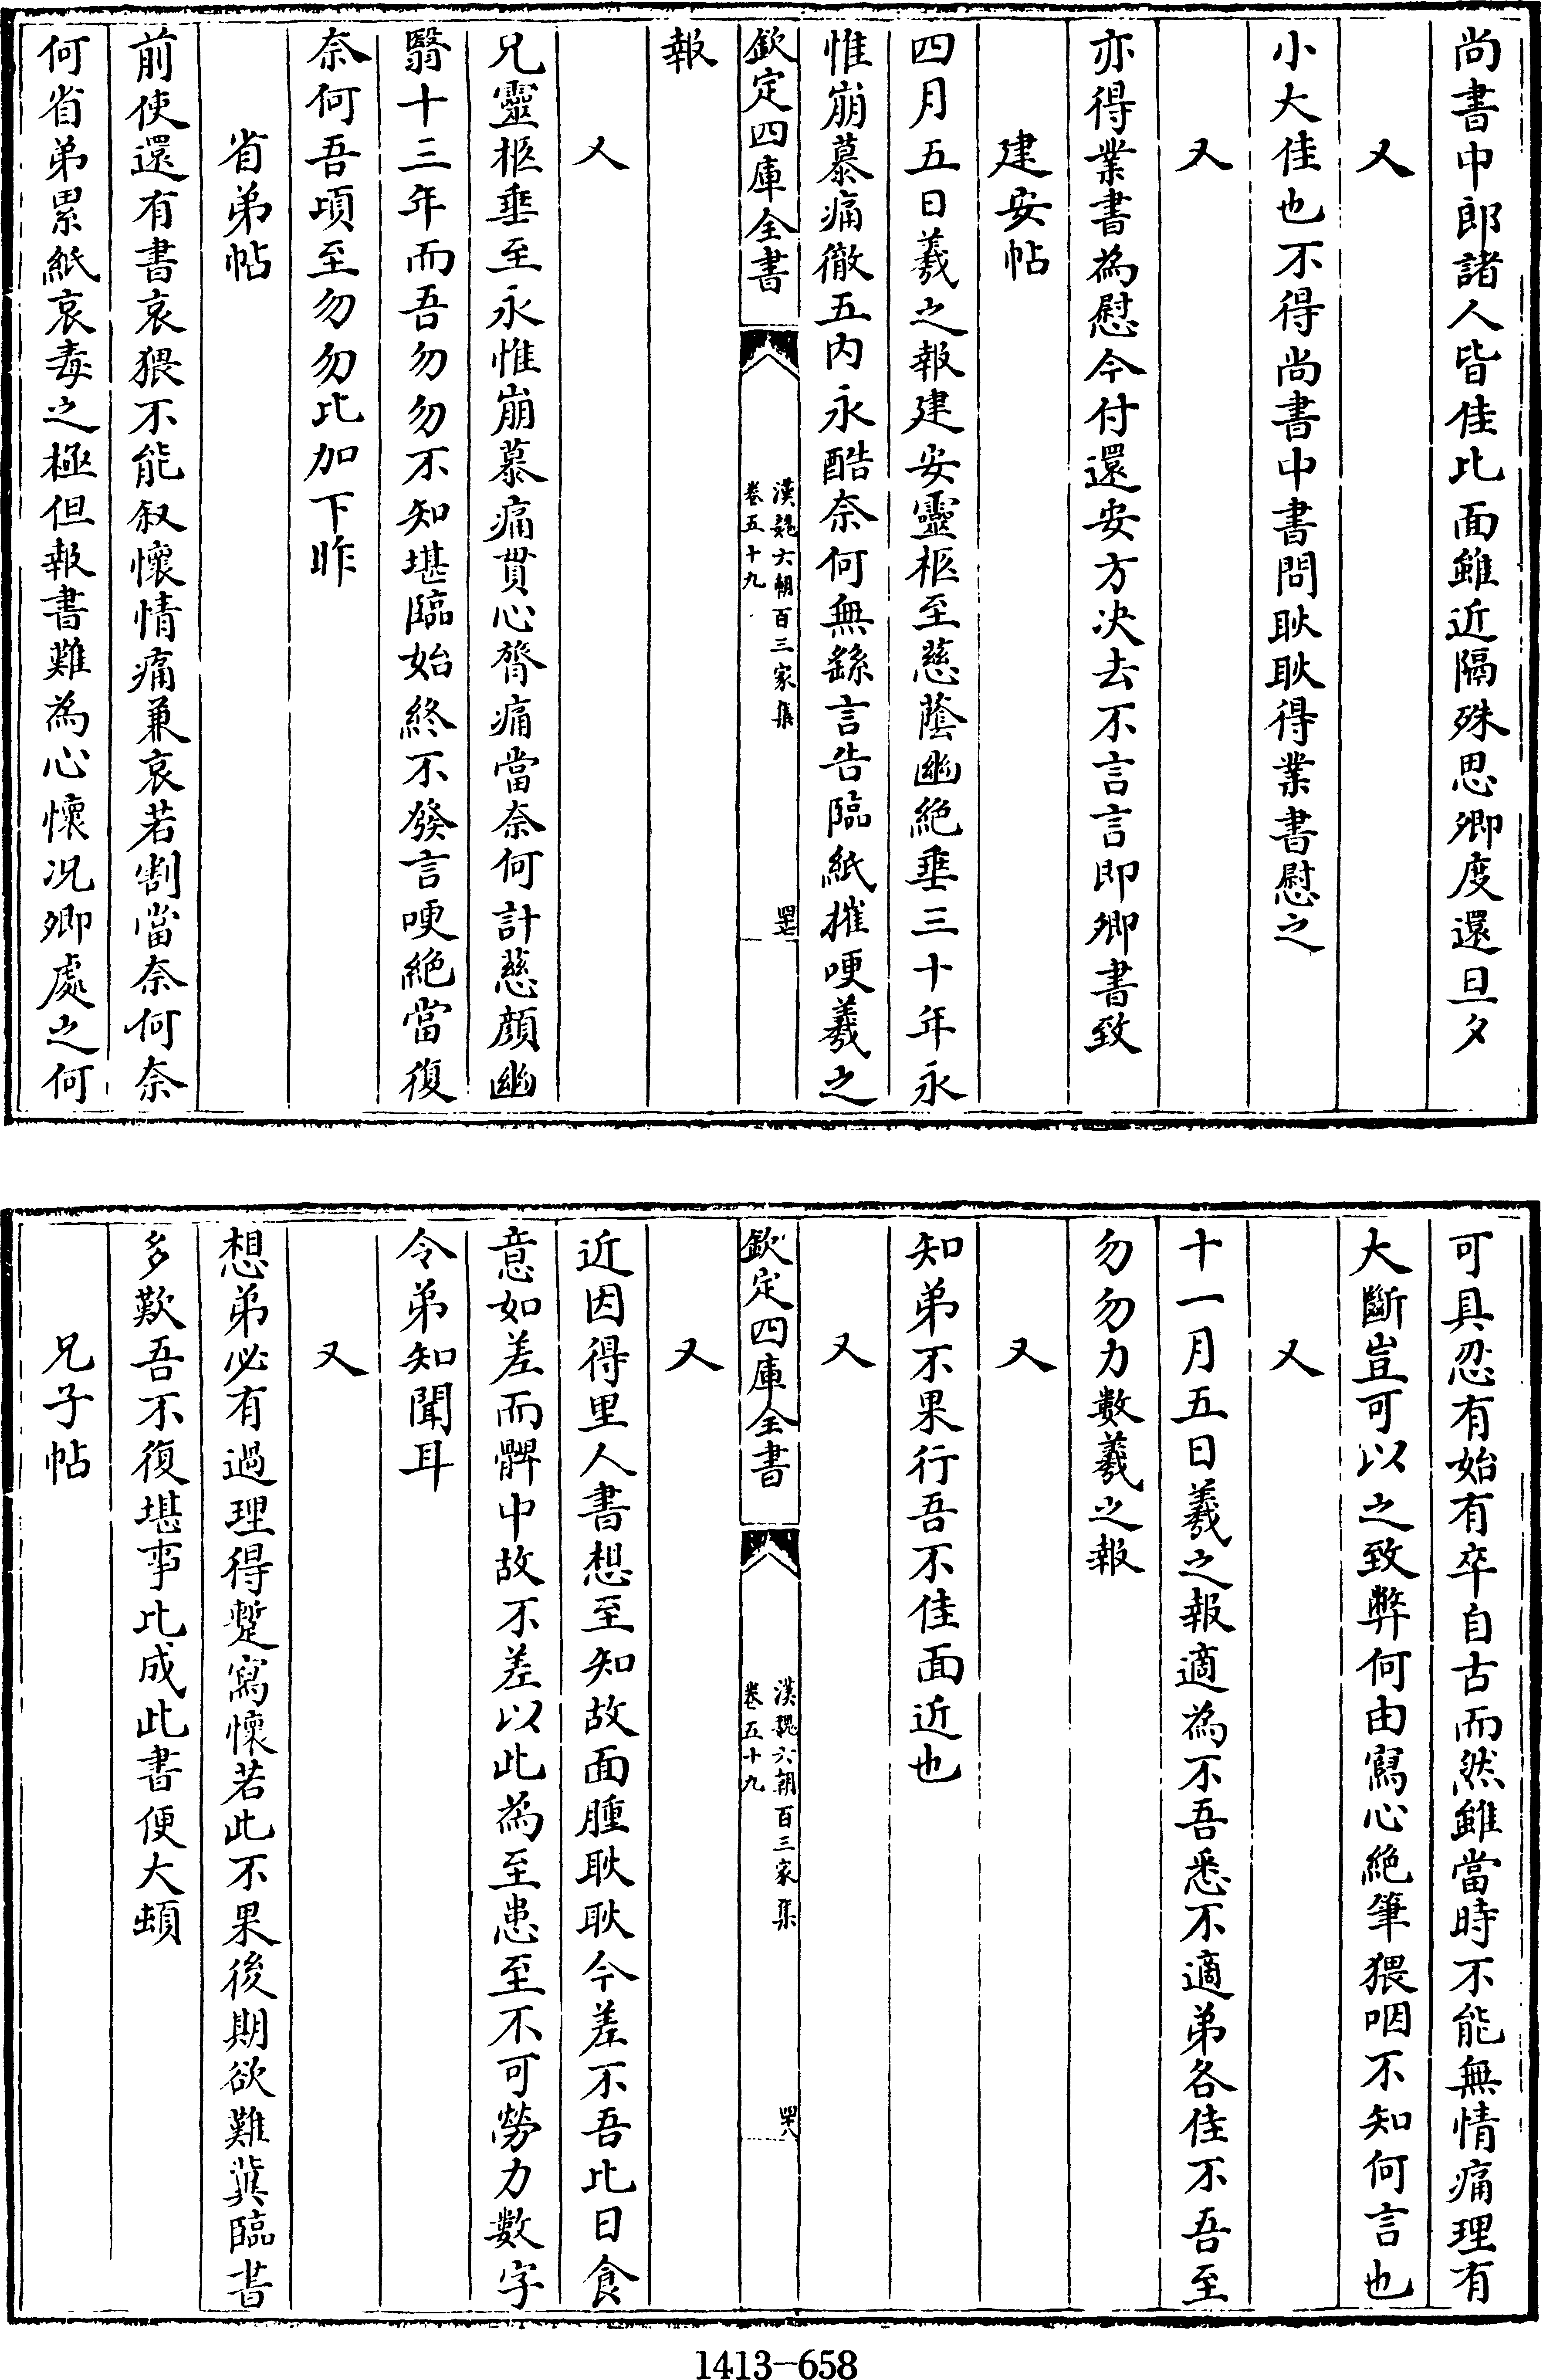 尚書中郎諸人皆佳比面雖近隔殊思卿度還旦夕
又
小大佳也不得尚書中書問耿耿得業書慰之
又
亦得業書為慰今付還安方决去不言言即卿書致
建安帖
四月五日羲之報建安靈柩至慈蔭幽絶垂三十年永
惟崩慕痛徹五内永酷奈何無繇言告臨紙摧哽羲之
欽定四庫全書
漢魏六朝百三家集
卷五十九
罡
報
又
兄靈柩垂至永惟崩慕痛貫心膂痛當奈何計慈顔幽
翳十三年而吾勿勿不知堪臨始終不發言哽絶當復
奈何吾頃至勿勿比加下昨
省弟帖
前使還有書哀猥不能叙懷情痛兼哀若割當奈何奈
何省弟累紙哀毒之極但報書難為心懷况卿處之何
可具忍有始有卒自古而然雖當時不能無情痛理有
大斷豈可以之致弊何由寫心絶筆猥咽不知何言也
又
十一月五日羲之報適為不吾悉不適弟各佳不吾至
勿勿力數羲之報
又
知弟不果行吾不佳面近也
又
欽定四庫全書
漢魏六朝百三家集
卷五十九
又
近因得里人書想至知故面腫耿耿今差不吾比日食
意如差而髀中故不差以此為至患至不可勞力數字
令弟知聞耳
又
想弟必有過理得蹔寫懷若此不果後期欲難冀臨書
多歎吾不復堪事比成此書便大頓
兄子帖
1413-658